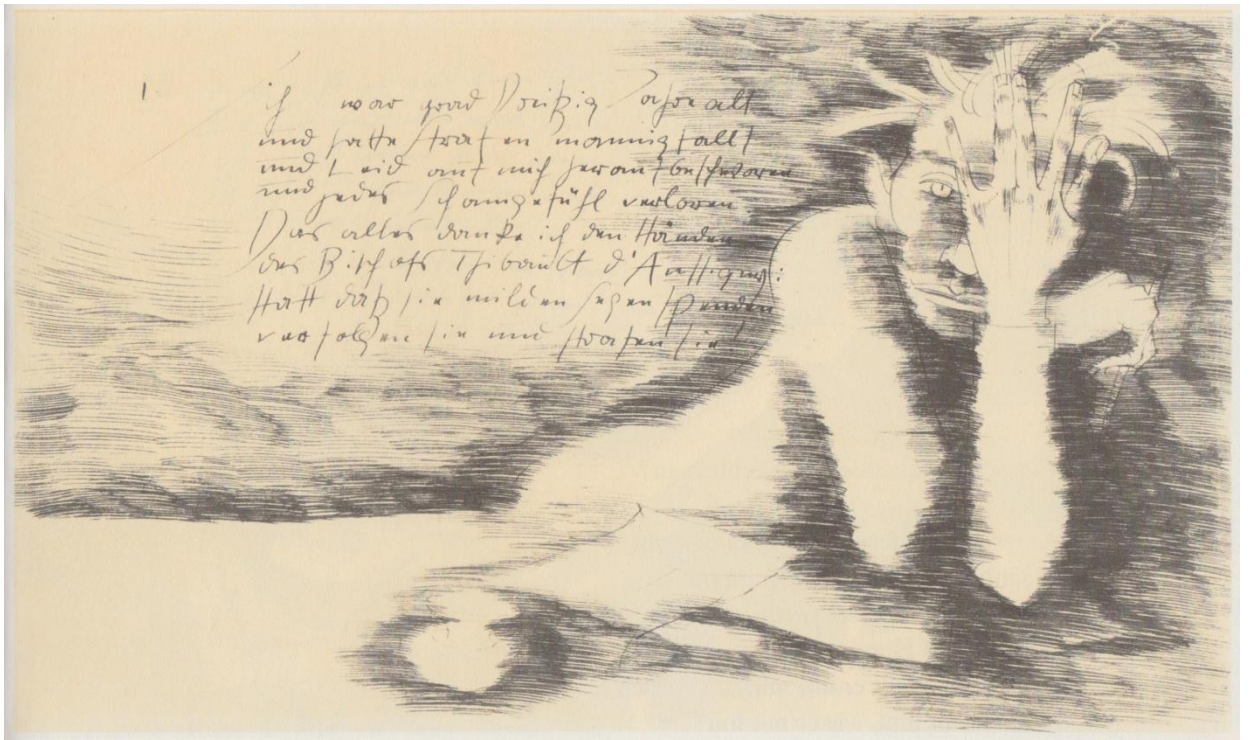 I
ich war grad Dreißig Jahre alt
und hatte Strafen mannigfallt
und Leid auf mich heraufbeschworen
und jedes Schamgefühl verloren
Das alles danke ich den Händen
des Bischofs Thibault d'Aussigny:
statt daß sie milden Segen spenden
verfolgen sie und strafen sie